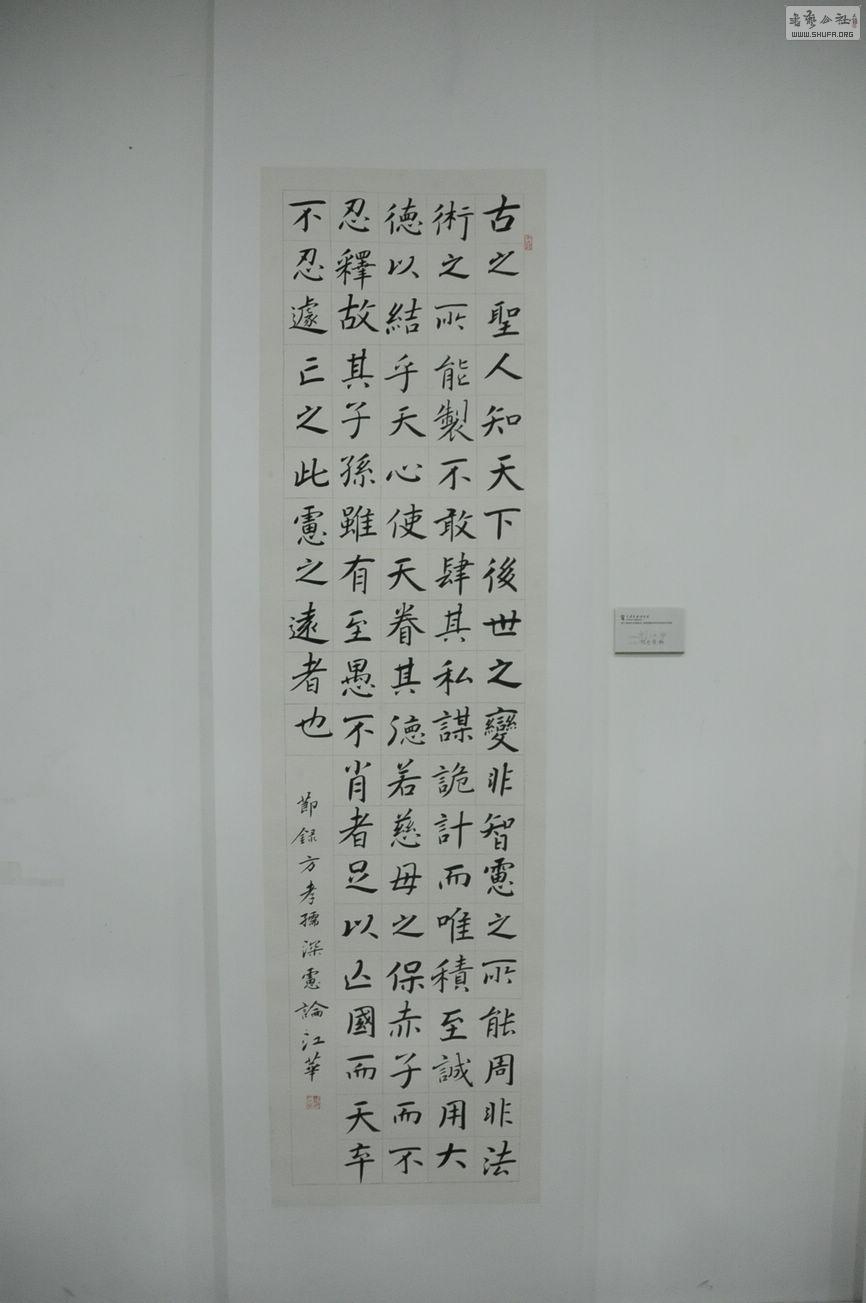 古之聖人知天下後世之變非智慮之所能周非法
術之所能製不敢肆其私謀詭計而唯積至誠用大
德以結乎天心使天眷其德若慈母之保赤子而不
忍釋故其子孫雖有至愚不肖者足以亡國而天卒
不忍遽亡之此慮之遠者也
節録方孝孺深慮論江華
WWW.SHUFA.ORG